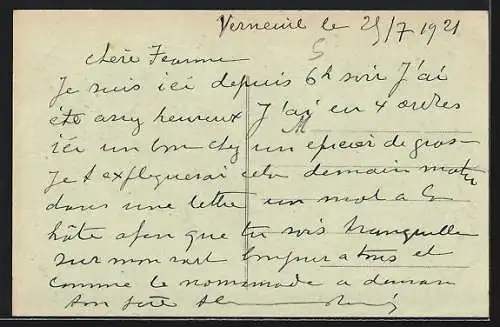 Verneuil le 25/7 1921
chère Jeanne
Je suis ici depuis 6h soir J'ai
été assez heureux J'ai eu 4 ordres
ici un bon chez un épicier de gros
Je t expliquerai cela demain matin
dans une lettre un mot a la
hâte afin que tu sois tranquille
sur mon sort bonjour a tous et
comme le a demain
ton